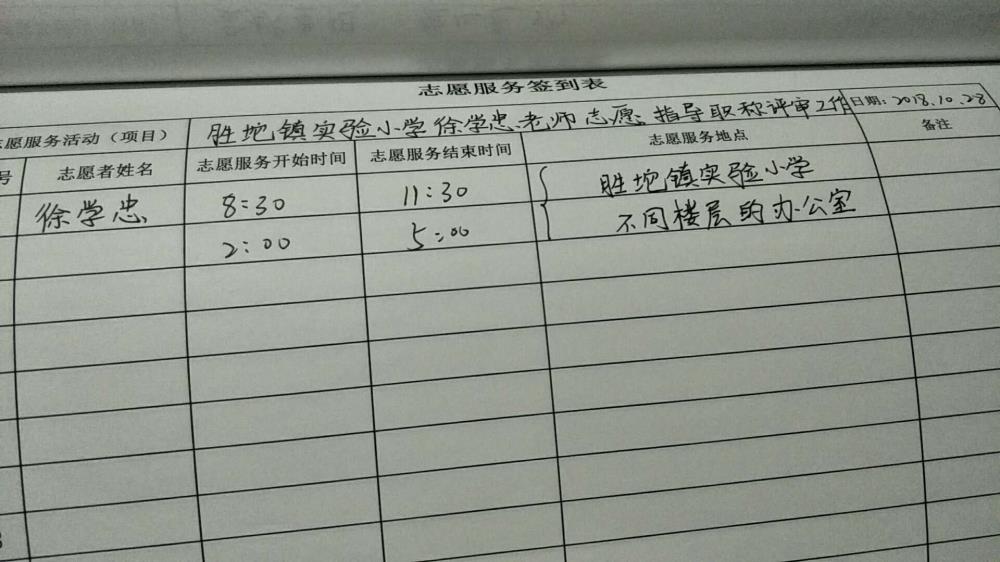 志愿服务签到表
志愿服务活动（项目） 胜坨镇实验小学徐学忠老师志愿指导职称评审工作 日期：2018.10.28
号 志愿者姓名 志愿服务开始时间 志愿服务结束时间 志愿服务地点 备注
徐学忠 8:30 11:30 胜坨镇实验小学
2:00 5:00 不同楼层的办公室